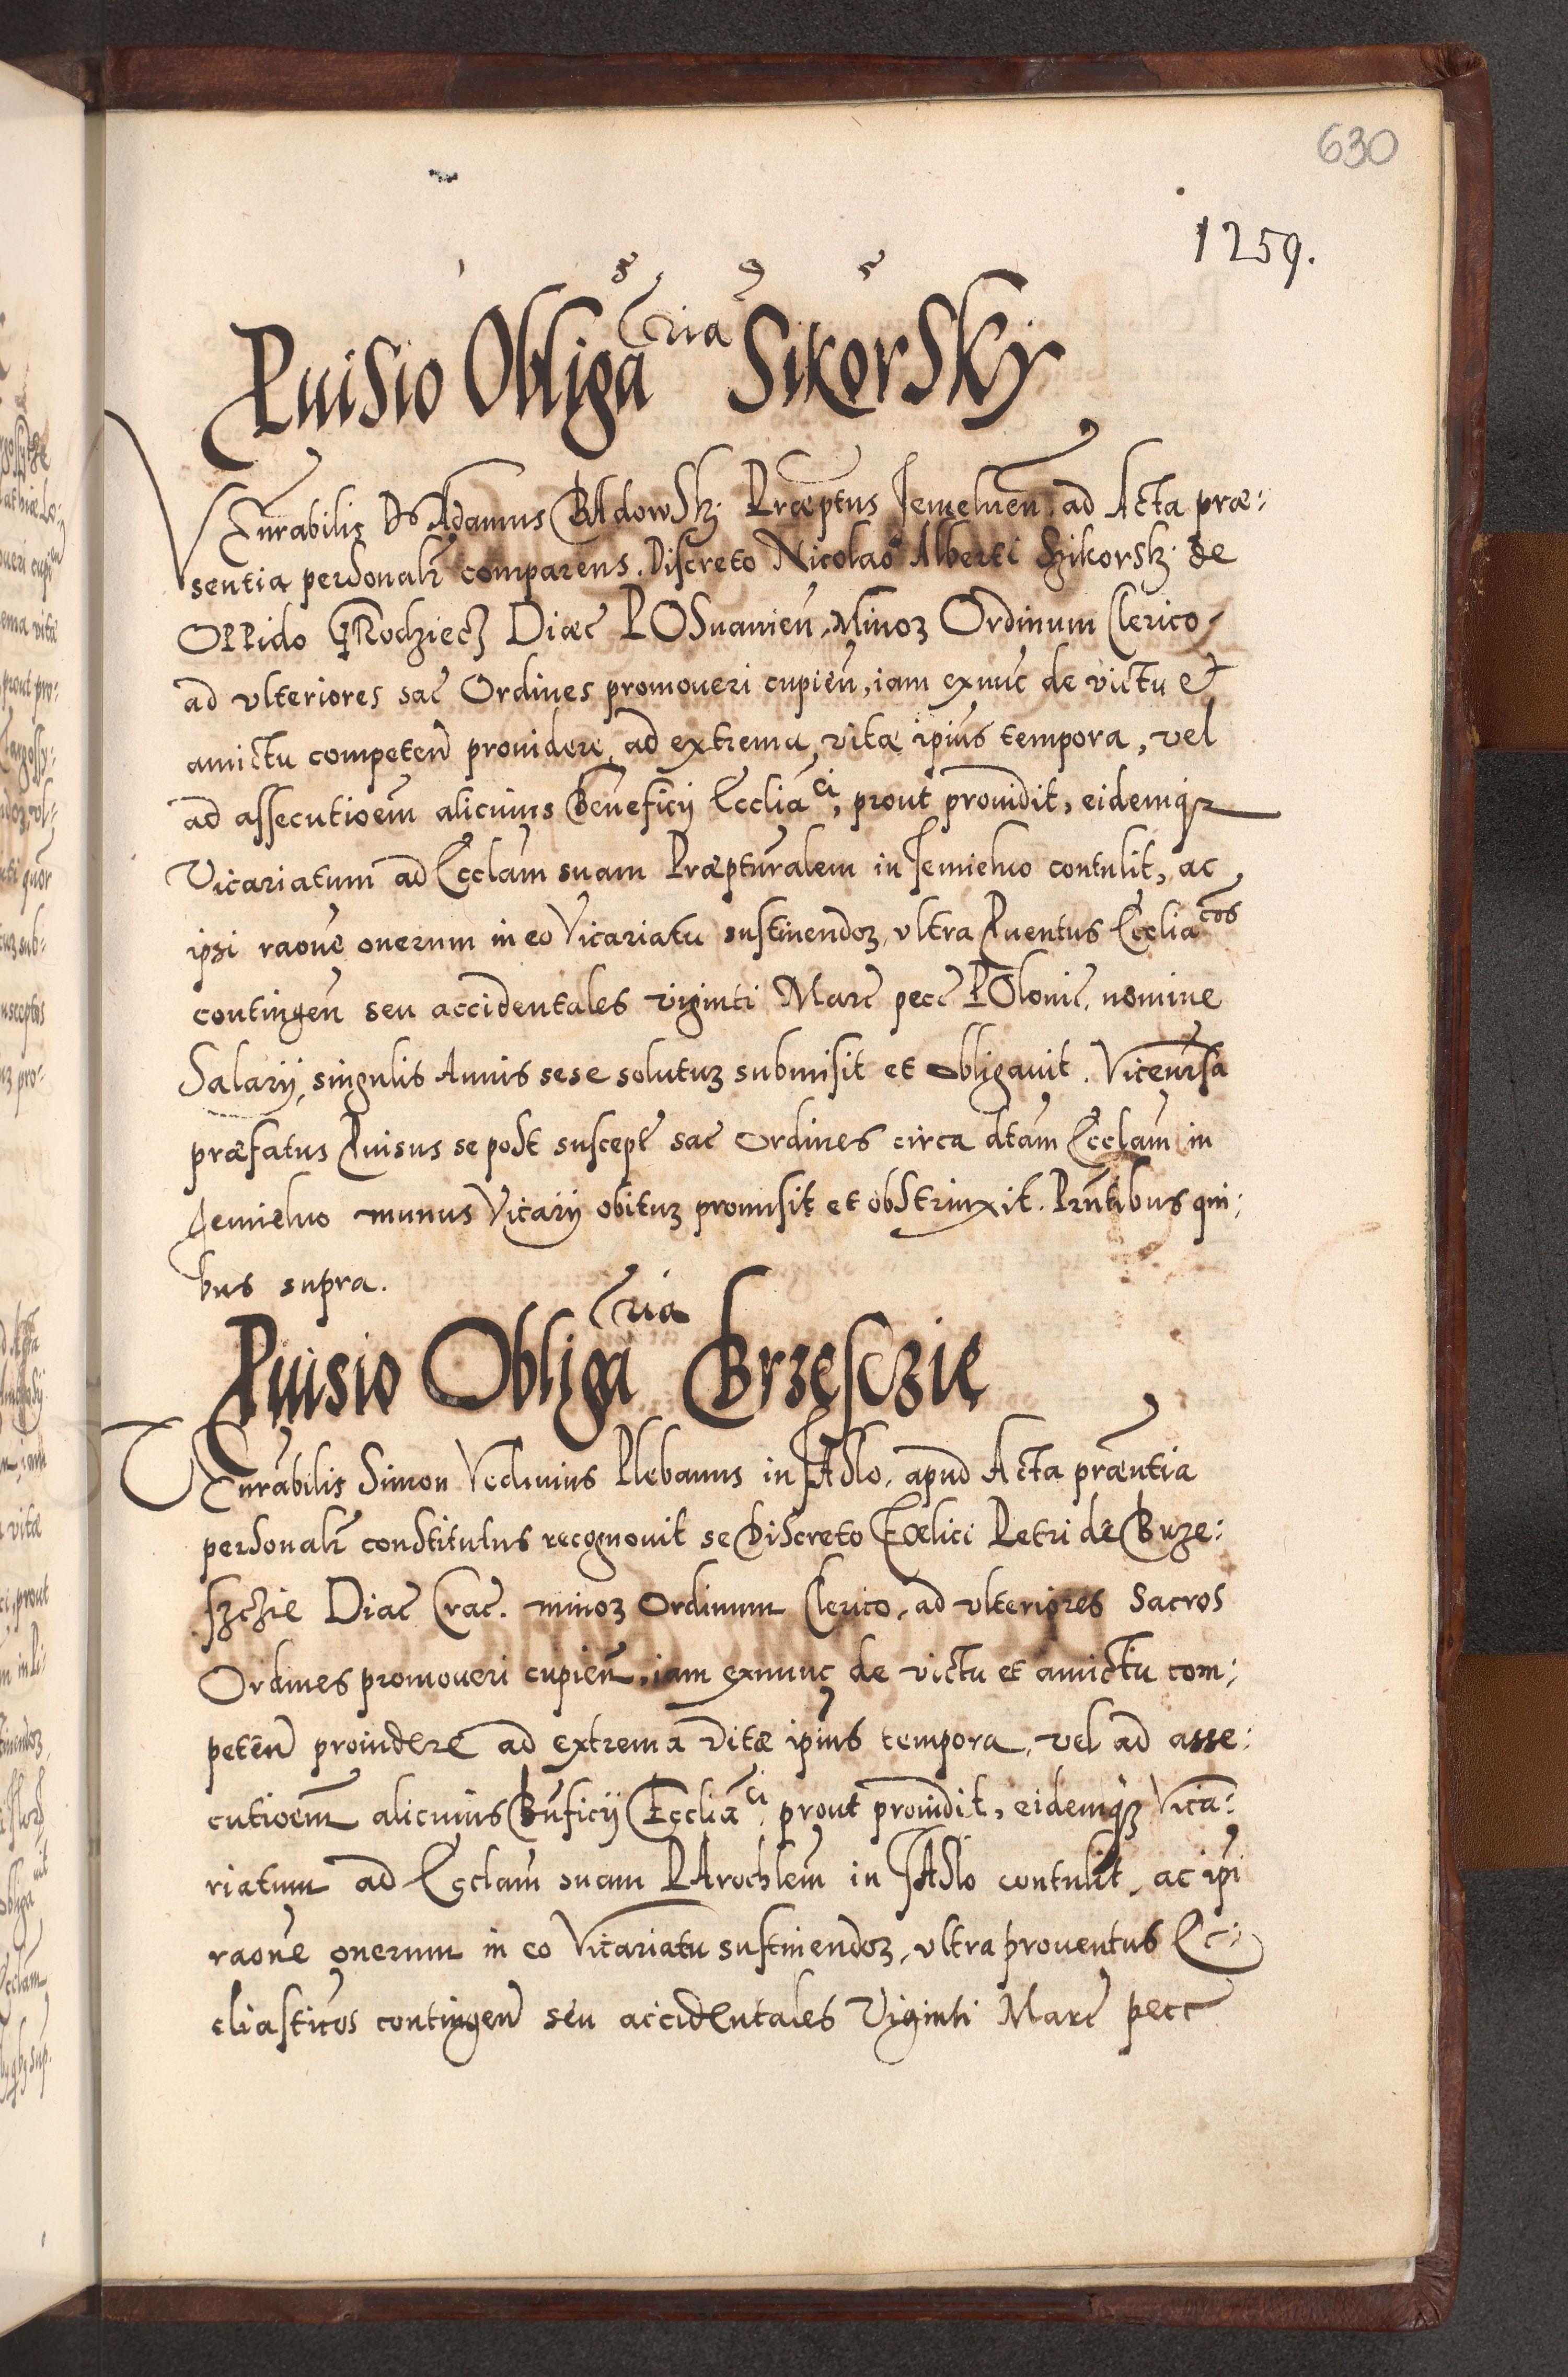 630
1259.
Puisio Obligãria Sikorsky
Venrabilis Ds Adamus BAldowSkj Præptus Jemelneñ, ad Acta præ:
sentia personalr comparens. Discreto Nicolao Alberti Szikorskj de
OPPido GRodziecz Diæc POSnanieñ, Minoꝝ Ordinum Clerico,
ad vlteriores sac Ordines promoueri cupieñ, iam exnuc de victu et
amictu competeñ prouidere, ad extrema vitæ ipius tempora, vel
ad assecutioem alicuius Beneficij Eccliãci, prout prouidit, eidemqꝫ
Vicariatum ad Ecclam suam Præpturalem in Jemielno contulit, ac
ipsi raone onerum in eo Vicariatu sustinendoꝝ, vltra Puentus Ecclia cos
contingeñ seu accidentales viginti Marc pecc POlonic, nomine
Salarij, singulis Annis sese soluturꝫ submisit et obligauit. Viceuersa
præfatus Puisus se post suscept sac Ordines circa dtam Ecclam in
Jemielno munus Vicarij obiturꝫ promisit et obstrinxit. Pñtibus qui:
bus supra.
Puisio Obligãria Brzesczie
Venrabilis Simon Vedinius Plebanus in JASlo, apud Acta præntia
personalr constitutus recognouit se Discreto Fœlici Petri de Brze:
szczie Diæc Crac. minoꝝ Ordinum Clerico, ad vlteriores Sacros
Ordines promoueri cupieñ, iam exnunc de victu et amictu com:
peteñ prouidere ad extrema vitæ ipius tempora, vel ad asse:
cutioem alicuius Bnficij Eccliãci, prout prouidit, eidemqꝫ Vica:
riatum ad Ecclam suam PArochlem in JASlo contulit, ac ipi
raone onerum in eo Vicariatu sustinendoꝝ, vltra prouentus Ec:
cliasticos contingeñ seu accidentales Viginti Marc pecc